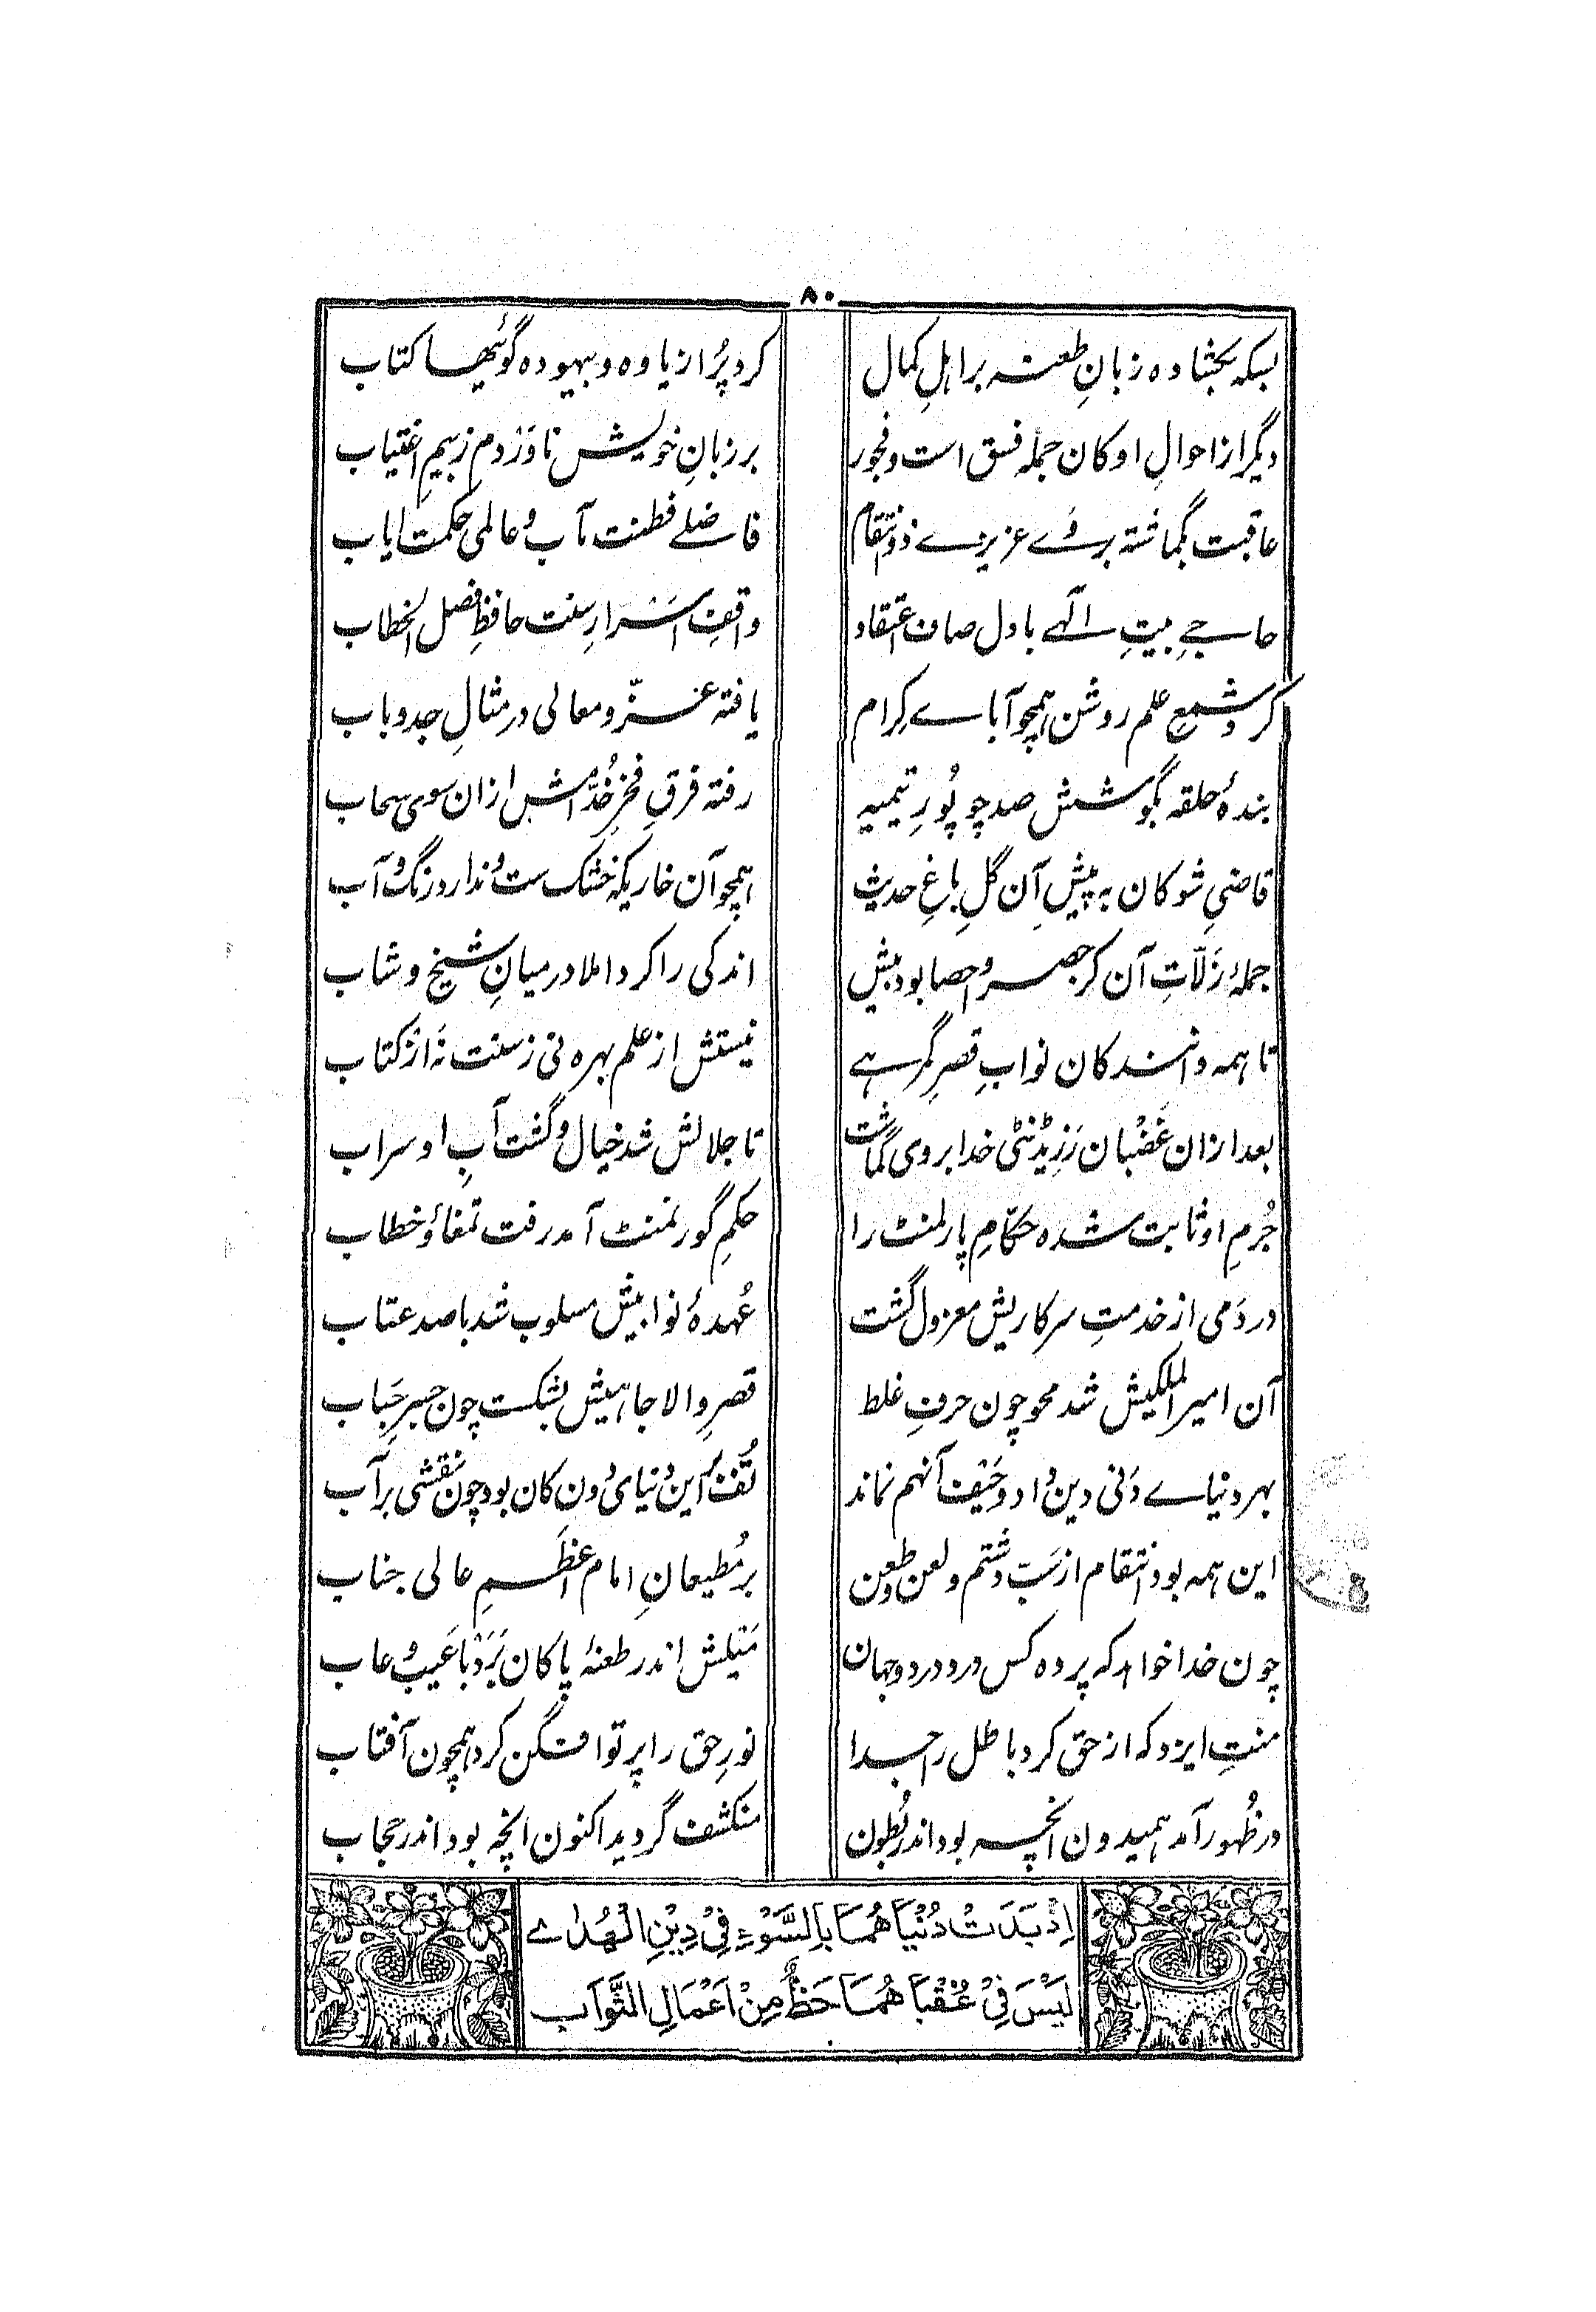 ۸۰
بسکہ بگشادہ زبانِ طعنہ بر اہلِ کمال
کرد پُر از یاوہ و بیہودہ گوئیہا کتاب
دیگر از احوالِ او کان جملہ فسق است و فجور
بر زبانِ خویش ناوَرْدم زبیمِ اغتیاب
عاقبت بگماشتہ بروَے عزیزے ذو انتقام
فاضلے فطنت مآب و عالمی حکمت ایاب
حاجیِ بیتِ الٰہے با دل صاف اعتقاد
واقفِ اسرارِ سنت حافظِ فصل الخطاب
کرد شمعِ علم روشن ہمچو آباے کِرام
یافتہ عزّ و معالی در مثالِ جد و باب
بندۂ حلقہ بگوشش صد چو پُورِ تیمیہ
رفتہ فرقِ فخرِ خُدّامش ازان سوی سحاب
قاضیِ شوکان بہ پیشِ آن گلِ باغِ حدیث
ہمچو آن خاریکہ خشک ست و ندارد رنگ و آب
جملۂ زلّاتِ آن کز حصر و احصا بود بیش
اندکی را کرد املا درمیانِ شیخ و شاب
تا ہمہ دانند کان نوابِ قصرِ گمرہے
نیستش از علم بہرہ نی زسنت نَہ از کتاب
بعد ازان غَضْبان رَزِیڈنٹی خدا بروی گماشت
تا جلالش شد خیال و گشت آبِ او سراب
جُرمِ او ثابت شدہ حکّامِ پارلمنٹ را
حکمِ گورنمنٹ آمد رفت تمغاؤ خطاب
در دَمی از خدمتِ سرکاریش معزول گشت
عُہدۂ نوابیش مسلوب شد با صد عتاب
آن امیر الملکیش شد محو چون حرفِ غلط
قصرِ والا جاہیش بشکست چون جسرِ حَباب
بہر دنیاے دَنی دین داد و حَیْف آنہم نماند
تُف برین دُنیای دون کان بود چون نقشی بر آب
این ہمہ بود انتقام از سَبّ و شتم و لعن و طعن
بر مُطیعانِ امام اعظَمِ عالی جناب
چون خدا خواہد کہ پردہ کس درد در دو جہان
مَیلش اندر طعنۂ پاکان بَرَد با عَیب و عاب
منتِ ایزد کہ از حق کرد باطل را جدا
نورِ حق را پرتو افگن کرد ہمچون آفتاب
در ظُہور آمد ہمیدون انچہ بود اندر بُطون
منکشف گردید اکنون انچہ بود اندر حجاب
اِذْ بَدَتْ دُنْیَاهُمَا بِالسَّوْءِ فِیْ دِیْنِ الْهُدٰے
لَیْسَ فِیْ عُقْبَاهُمَا حَظٌّ مِنْ اَعْمَالِ الثَّوَاب